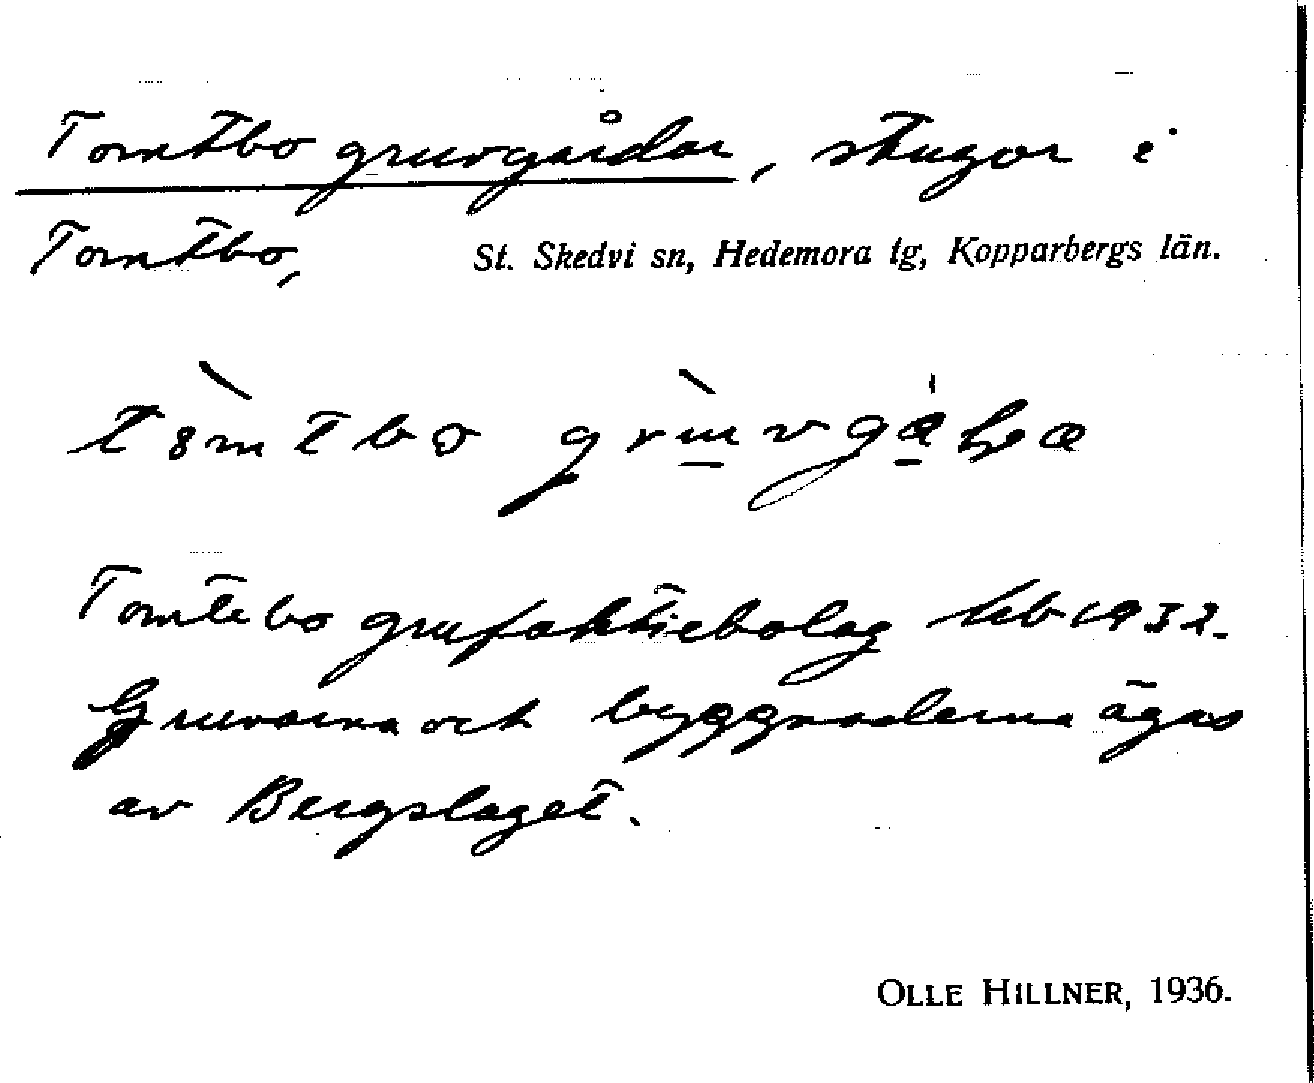 Tomtbo gruvgårdar, stugor i
Tomtbo, St. Skedvi sn, Hedemora tg, Kopparbergs län.
Tomtebo grufaktiebolag lxb 1932.
Gruvorna och byggnaderna ägas
av Bergslaget.
OLLE HILLNER, 1936.